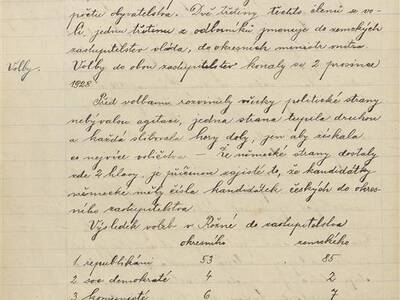 počtu obyvatelstva. Dvě třetiny těchto členů se vo-
lí, jednu třetinu z odborníků jmenuje do zemských
zastupitelstev vláda, do okresních ministr vnitra.
Volby.
Volby do obou zastupitelstev konaly se 2 prosince
1928.
Před volbami rozvinuly všecky politické strany
nebývalou agitaci, jedna strana tupila druhou
a každá slibovala hory doly, jen aby získala
co nejvíce voličstva – Že německé strany dostaly
zde 2 hlasy, je příčinou zajisté to, že kandidátky
německé měly čísla kandidátek českých do okres-
ního zastupitelstva
Výsledek voleb v Rožné do zastupitelstva
okresního zemského
1 republikáni 53 85
2 soc demokraté 4 2
3 komunisté 6 7